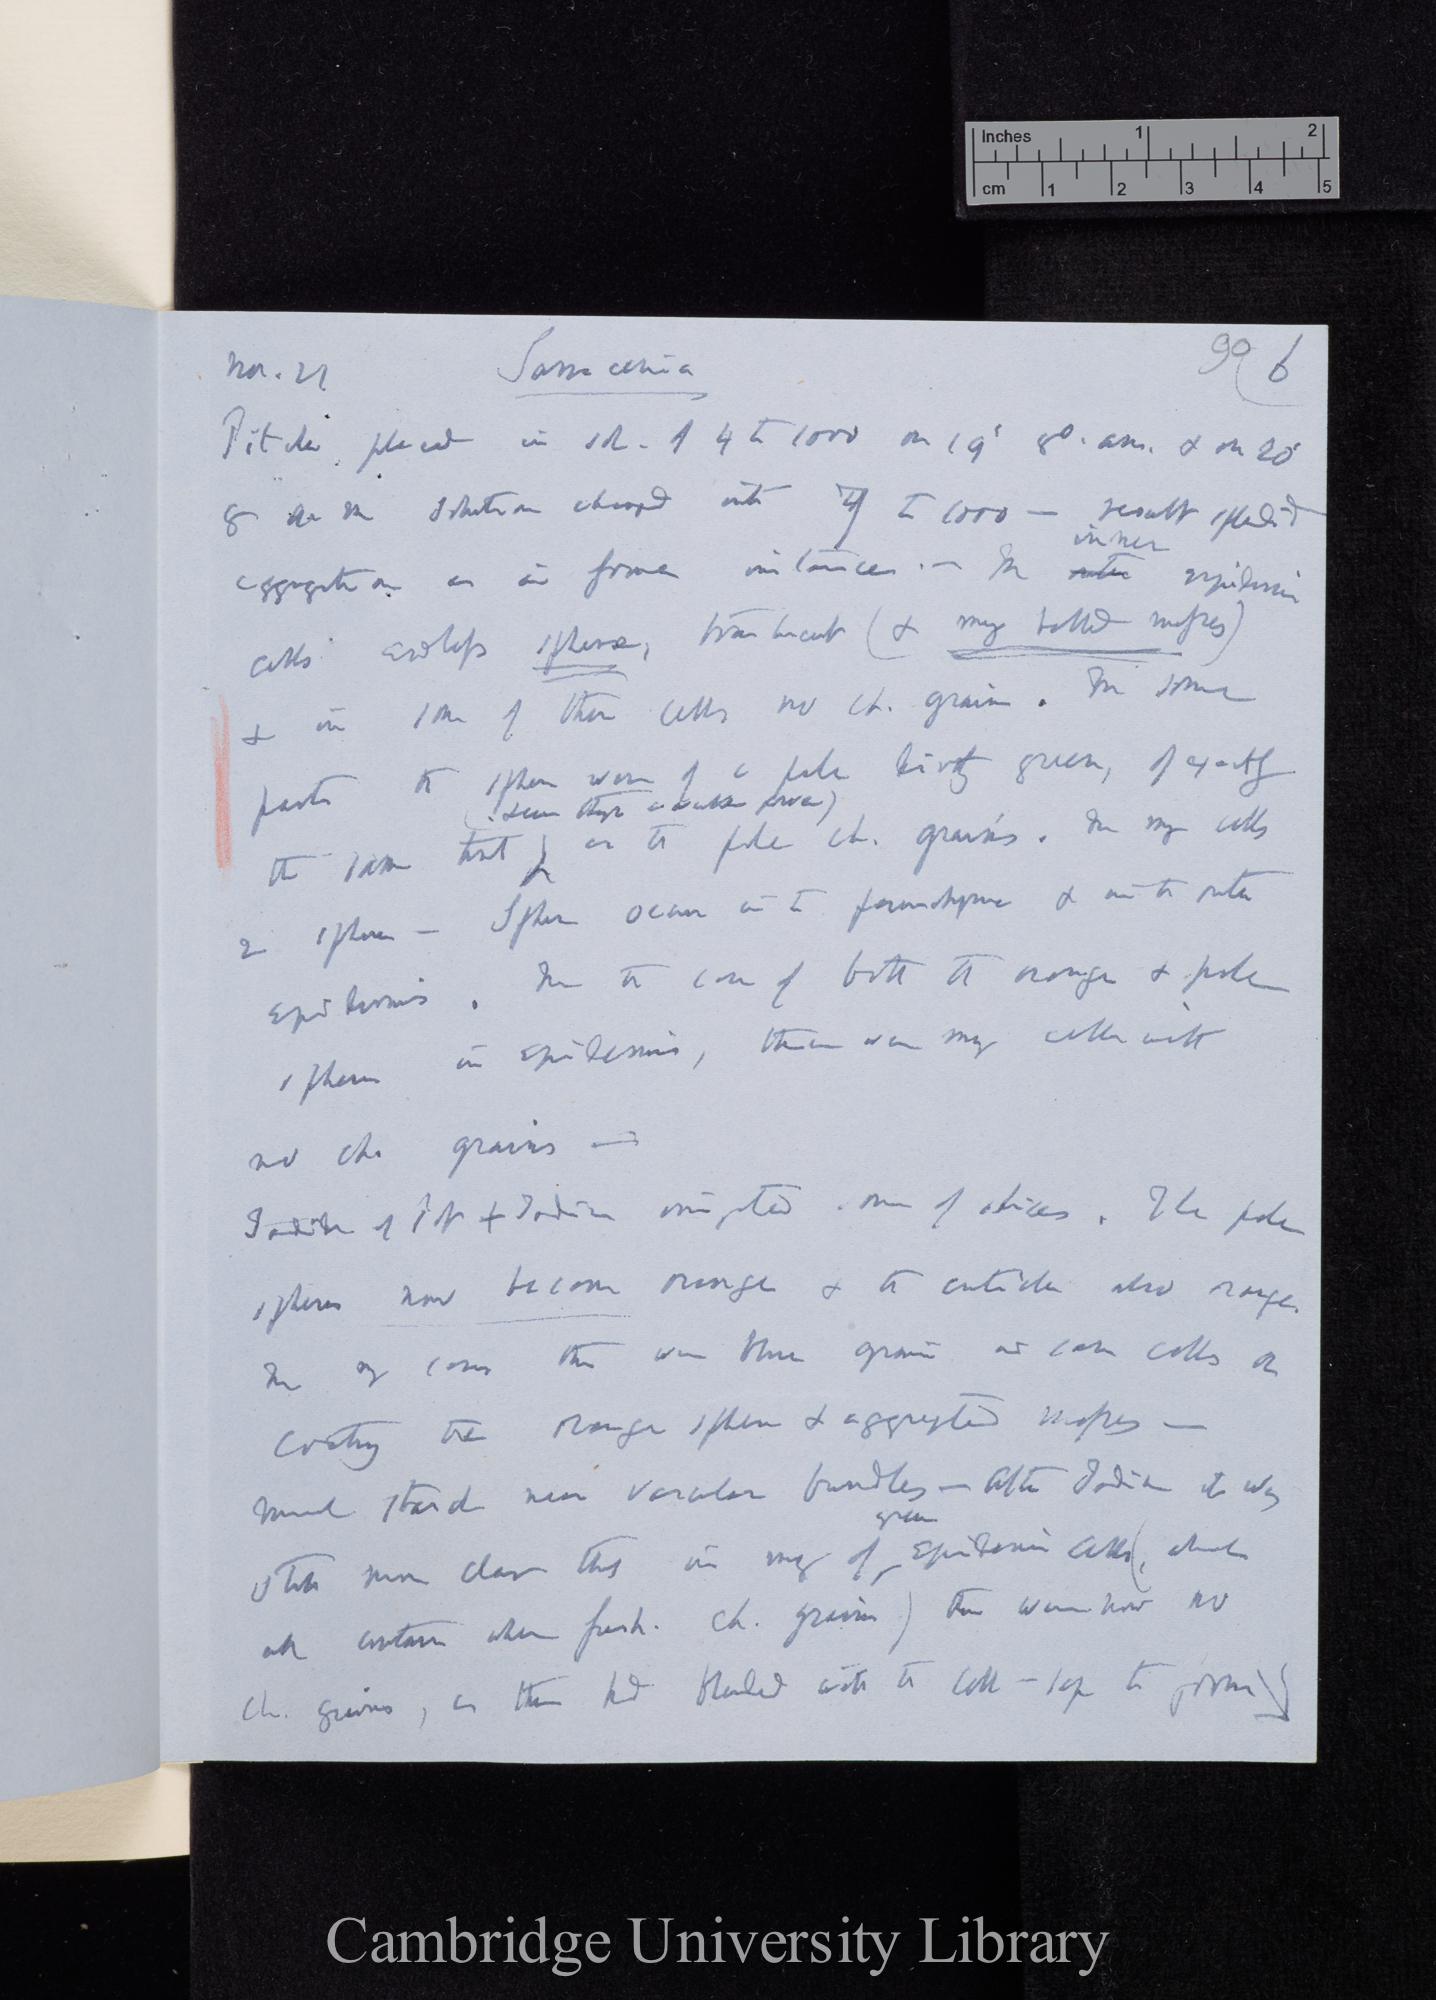 Inches 1 2
cm 1 2 3 4 5
Nov. 21 Sarracenia 99 6
Pitcher placed in sol. of 4 to 1000 on 19th 8° a.m. & on 20th
8 a m solution changed with 7 to 1000 — result splendid
aggregation as in former instances. — In outer inner epidermis
cells endless spheres, translucent (& many balled masses)
& in some of these cells no ch. grains. In some
parts the spheres were of a pale green, of exactly
the same tint as the pale ch. grains. In many cells
2 spheres — Spheres occur in the parenchyma & in the outer
epidermis. In the case of both the orange & pale
spheres in epidermis, there were many cells with
no ch. grains —
Iodide of Pot & Iodine some of slices. The pale
spheres now become orange & the cuticle also orange.
In many cases there were blue grains in same cells as
the orange spheres & aggregated masses —
Much starch near vascular bundles — After Iodine it was
still more clear that in many of green epidermis cells (, which
all contain when fresh ch. grains) there were now no
ch. grains, as these had blended with the cell-sap to form
Cambridge University Library